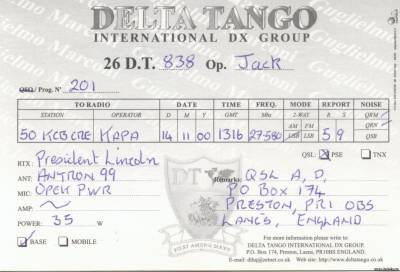 DELTA TANGO
INTERNATIONAL DX GROUP
26 D.T. 838 Op. Jack
QSO / Prog. N° 201
TO RADIO DATE TIME FREQ. MODE REPORT NOISE
STATION OPERATOR D M Y GMT Mhz 2-WAY R S QRM
QRN
QSB
AM FM
LSB USB
50 KCB CRE KAPA 14 11 00 1316 27·580 5 9
QSL: PSE TNX
RTX: President Lincoln
ANT: ANTRON 99
MIC: OPEK PWR
AMP:
POWER: 35 W
BASE MOBILE
Remarks: QSL A.D,
PO BOX 174
PRESTON, PR1 0BS
LANCS, ENGLAND
DT
FIRST AMONG MANY
For more information please write to
DELTA TANGO INTERNATIONAL DX GROUP.
P.O. Box 174, Preston, Lancs, PR10BS ENGLAND.
Web site: http://www.deltatango.co.uk